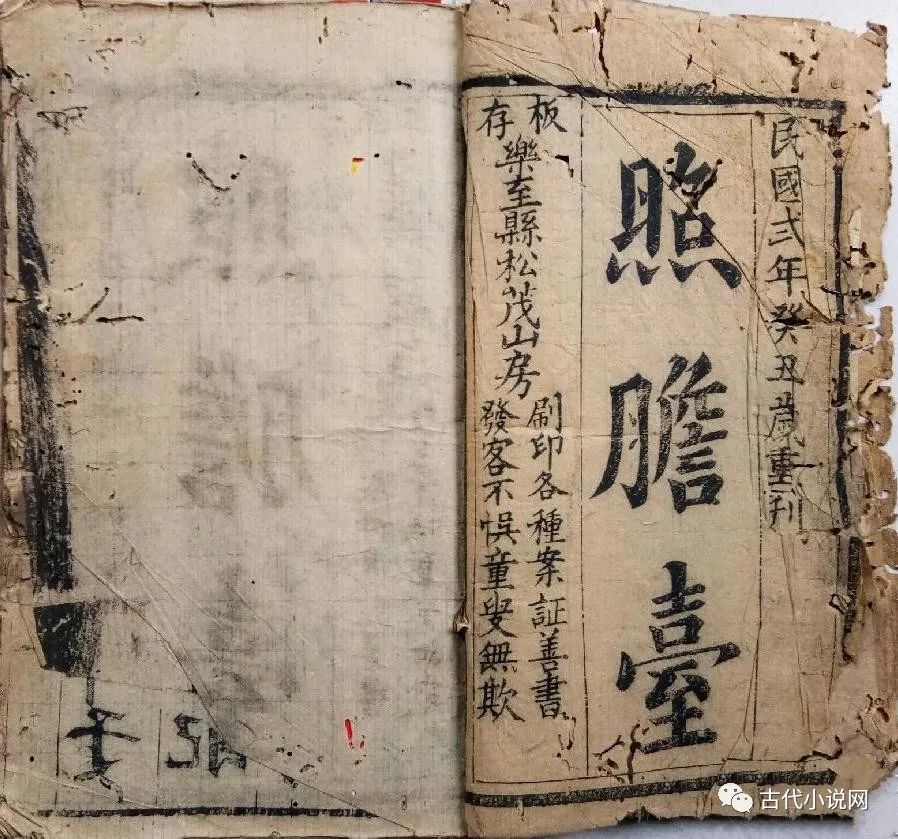 民國弍年癸丑歲重刊
照膽臺
板存
樂至縣松茂山房
刷印各種案証善書
發客不悞童叟無欺
古代小说网